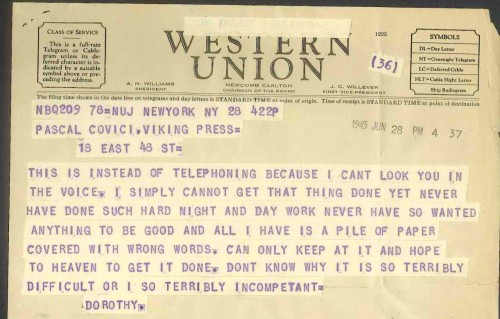 CLASS OF SERVICE
This is a full-rate
Telegram or Cable-
gram unless its de-
ferred character is in-
dicated by a suitable
symbol above or pre-
ceding the address.
WESTERN
UNION
1225
(36)
A. N. WILLIAMS
PRESIDENT
NEWCOMB CARLTON
CHAIRMAN OF THE BOARD
J. C. WILLEVER
FIRST VICE-PRESIDENT
SYMBOLS
DL=Day Letter
NT=Overnight Telegram
LC=Deferred Cable
NLT=Cable Night Letter
Ship Radiogram
The filing time shown in the date line on telegrams and day letters is STANDARD TIME at point of origin. Time of receipt is STANDARD TIME at point of destination
NBQ209 78=NUJ NEWYORK NY 28 422P
PASCAL COVICI, VIKING PRESS=
18 EAST 48 ST=
1945 JUN 28 PM 4 37
THIS IS INSTEAD OF TELEPHONING BECAUSE I CANT LOOK YOU IN
THE VOICE. I SIMPLY CANNOT GET THAT THING DONE YET NEVER
HAVE DONE SUCH HARD NIGHT AND DAY WORK NEVER HAVE SO WANTED
ANYTHING TO BE GOOD AND ALL I HAVE IS A PILE OF PAPER
COVERED WITH WRONG WORDS. CAN ONLY KEEP AT IT AND HOPE
TO HEAVEN TO GET IT DONE. DONT KNOW WHY IT IS SO TERRIBLY
DIFFICULT OR I SO TERRIBLY INCOMPETANT=
DOROTHY.